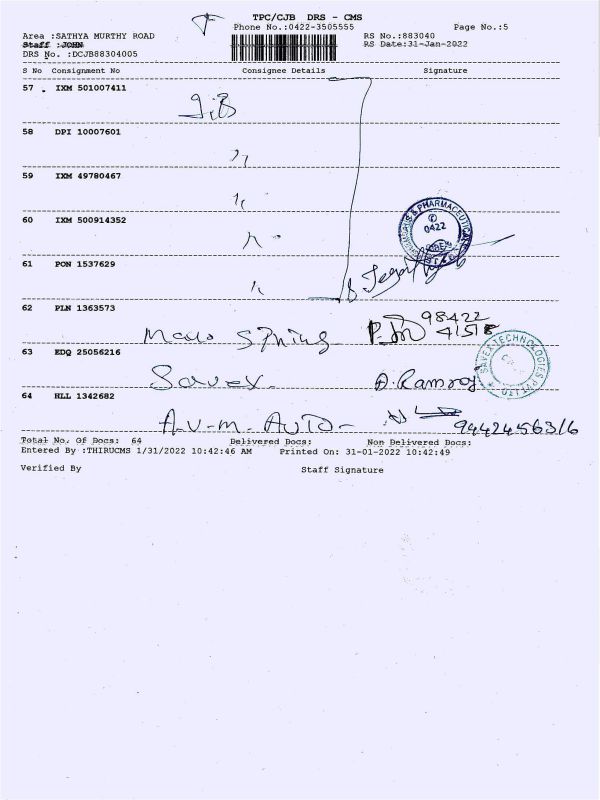 TPC/CJB DRS - CMS
Phone No.:0422-3505555 Page No.:5
Area :SATHYA MURTHY ROAD RS No.:883040
Staff :JOHN RS Date:31-Jan-2022
DRS No. :DCJB88304005
S No Consignment No Consignee Details Signature
57 IXM 501007411
58 DPI 10007601
59 IXM 49780467
60 IXM 500914352
& PHARMACEUTICAL
0422
61 PON 1537629
62 PLN 1363573
98422
63 EDQ 25056216
Savex A.Ramraj
SAVEX TECHNOLOGIES PVT LTD
64 HLL 1342682
A.V.M. AUTO 9442456316
Total No. Of Docs: 64 Delivered Docs: Non Delivered Docs:
Entered By :THIRUCMS 1/31/2022 10:42:46 AM Printed On: 31-01-2022 10:42:49
Verified By Staff Signature